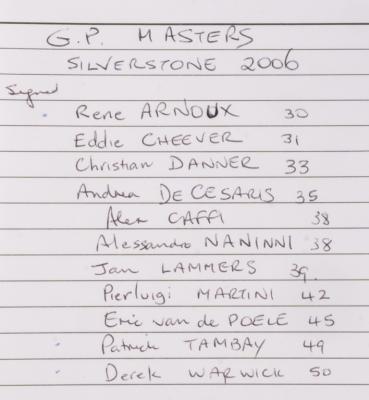 G.P. MASTERS
SILVERSTONE 2006
Signed
Rene ARNOUX 30
Eddie CHEEVER 31
Christian DANNER 33
Andrea DE CESARIS 35
Alex CAFFI 38
Alessandro NANINNI 38
Jan LAMMERS 39.
Pierluigi MARTINI 42
Eric van de POELE 45
Patrick TAMBAY 49
Derek WARWICK 50